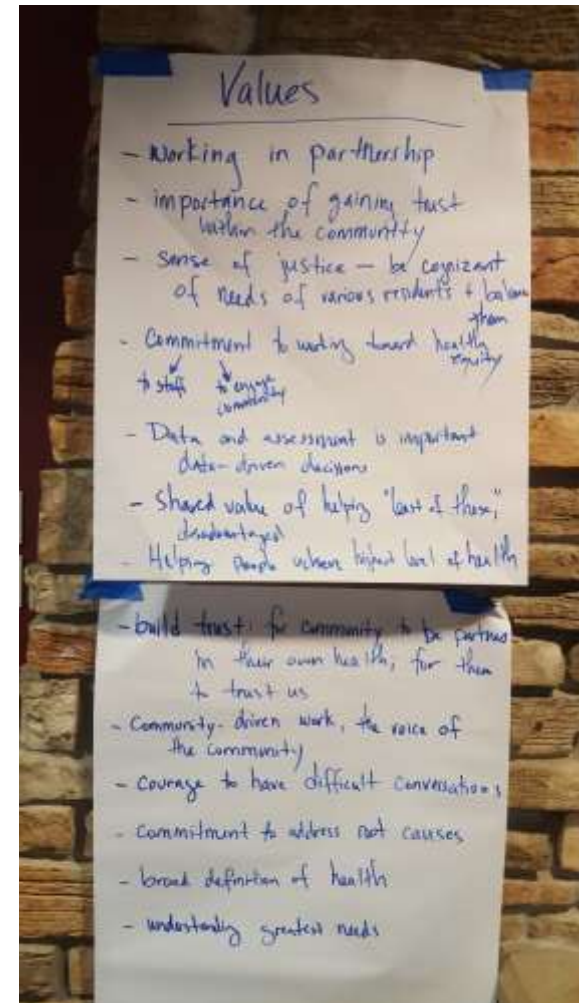 Values
- Working in partnership
- importance of gaining trust
within the community
- sense of justice - be cognizant
of needs of various residents + balance
them
- Commitment to working toward health
equity
to staff to engage
community
- Data and assessment is important
data-driven decisions
- Shared value of helping "least of these,"
disadvantaged
- Helping people achieve highest level of health
- build trust: for community to be partners
in their own health, for them
to trust us
- Community-driven work, the voice of
the community
- Courage to have difficult conversations
- Commitment to address root causes
- broad definition of health
- understanding greatest needs